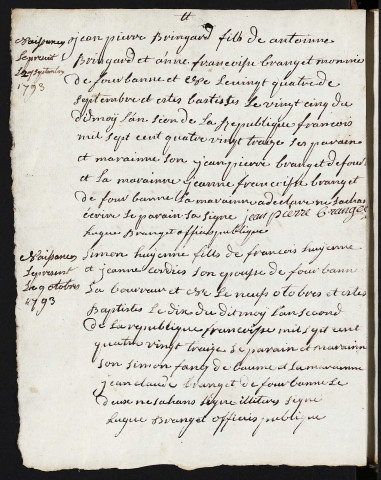 tt
Naissance
Le preuit
24 septembre
1793
jean pierre Bringard fils de antoinne
Bringard et anne francoise branget monnié
de fourbanne et Né Le vingt quatre de
septembre et estes bastistes Le vingt cinq du
dimoÿ Lan second de La Republique francois
mil sept cent quatre vingt traize Ses parain
et marainne son jean pierre branget defour
et La marainne jeanne francoisse branget
de fourbanne La marainne a declare ne savoir
ecrire Le parain La Signe jean pierre branget
Luque Branget officies publique
Naissance
Le preuit
Le 9 otobres
1793
Simon huyenne fils de francois huyenne
et jeanne son epousse de fourbanne
La boureaux et Né Le neuf otobres et estes
Baptistes Le dix du dit moÿ Lan second
de La republique francoisse mil sept cent
quatre vingt traize Le parain et marainne
son Simon de baume et La marainne
jean claude branget de fourbanne Le
deux ne sachans signe illitires signe
Luque Branget officies publique